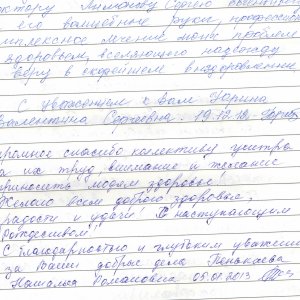 доктору Лиманову Сергею
его волшебные руки, професси
мплексное лечение моих проблем
здоровьем, вселяющего надежду
веру в скорейшем выздоровлении.
С уважением к Вам Зорина
Валентина Сергеевна. 19.12.12.
громное спасибо коллективу центра
за их труд, внимание и желание
приносить людям здоровье!
Желаю всем доброго здоровья,
радости и удачи! С наступающим
Рождеством!
С благодарностью и глубоким уважени
за Ваши добрые дела
Наталья Романовна 05.01.2013